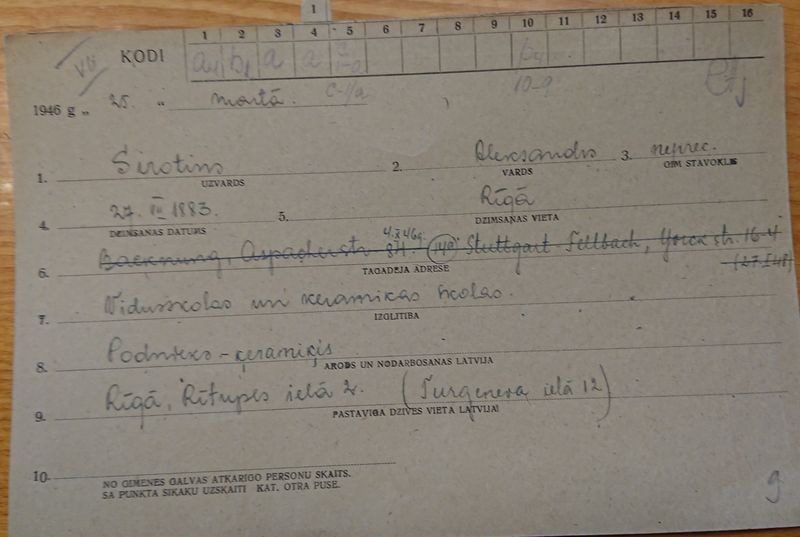 1
KODI 1 2 3 4 5 6 7 8 9 10 11 12 13 14 15 16
VII a4 b1 a a
10-9
1946 g „ 25. “ martā. C-1/a
1. Sirotins 2. Aleksandrs 3. neprec.
UZVARDS VARDS ĢIM STAVOKLIS
4. 27. III 1883. 5. Rīgā
DZIMŠANAS DATUMS DZIMŠANAS VIETA
4.X 46g.
6. Backnang, Aspacherstr. 84. (140) Stuttgart-Fellbach, Yorck str. 16-4
TAGADEJA ADRESE
(27.I 48)
7. Vidusskolas un keramikas skolas.
IZGLITIBA
8. Podnieks-ķeramiķis
ARODS UN NODARBOŠANAS LATVIJA
9. Rīgā, Rītupes ielā 2. (Turgeneva ielā 12)
PASTAVIGA DZIVES VIETA LATVIJAI
10.
NO ĢIMENES GALVAS ATKARIGO PERSONU SKAITS.
SA PUNKTA SIKAKU UZSKAITI KAT. OTRA PUSE.
9